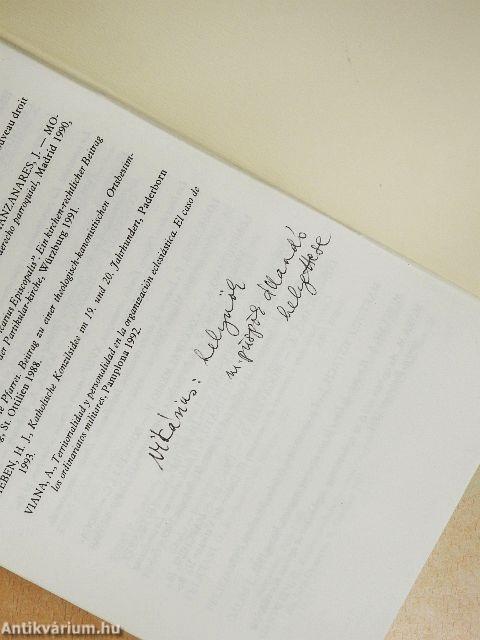 uveau droit
ANZANARES, J. — MO-
derecho parroquial, Madrid 1990,
icarius Episcopalis". Ein kirchen-rechtlicher Beitrag
der Partikular-kirche, Würzburg 1991.
e Pfarrei. Beitrag zu einer theologisch-kanonistischen Ortsbestim-
g, St. Ottilien 1988.
IEBEN, H. J., Katholische Konzilsidee im 19. und 20. Jahrhundert, Paderborn
1993.
VIANA, A., Territorialidad y personalidad en la organización eclesiástica. El caso de
los ordinariatos militares, Pamplona 1992.
vikárius: helynök
m. püspök állandó
helyettese
Antikvárium.hu